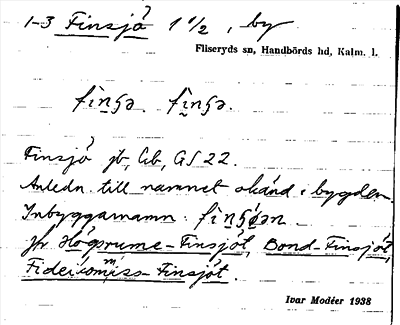 1-3 Finsjö 1 1/2, by
Fliseryds sn, Handbörds hd, Kalm. l.
Finsjö jb, Gb, GS 22.
Anledn. till namnet okänd i bygden.
Inbyggarnamn:
jfr Högsrums-Finsjöt, Bond-Finsjöt,
Fideikommiss-Finsjöt.
Ivar Modéer 1938